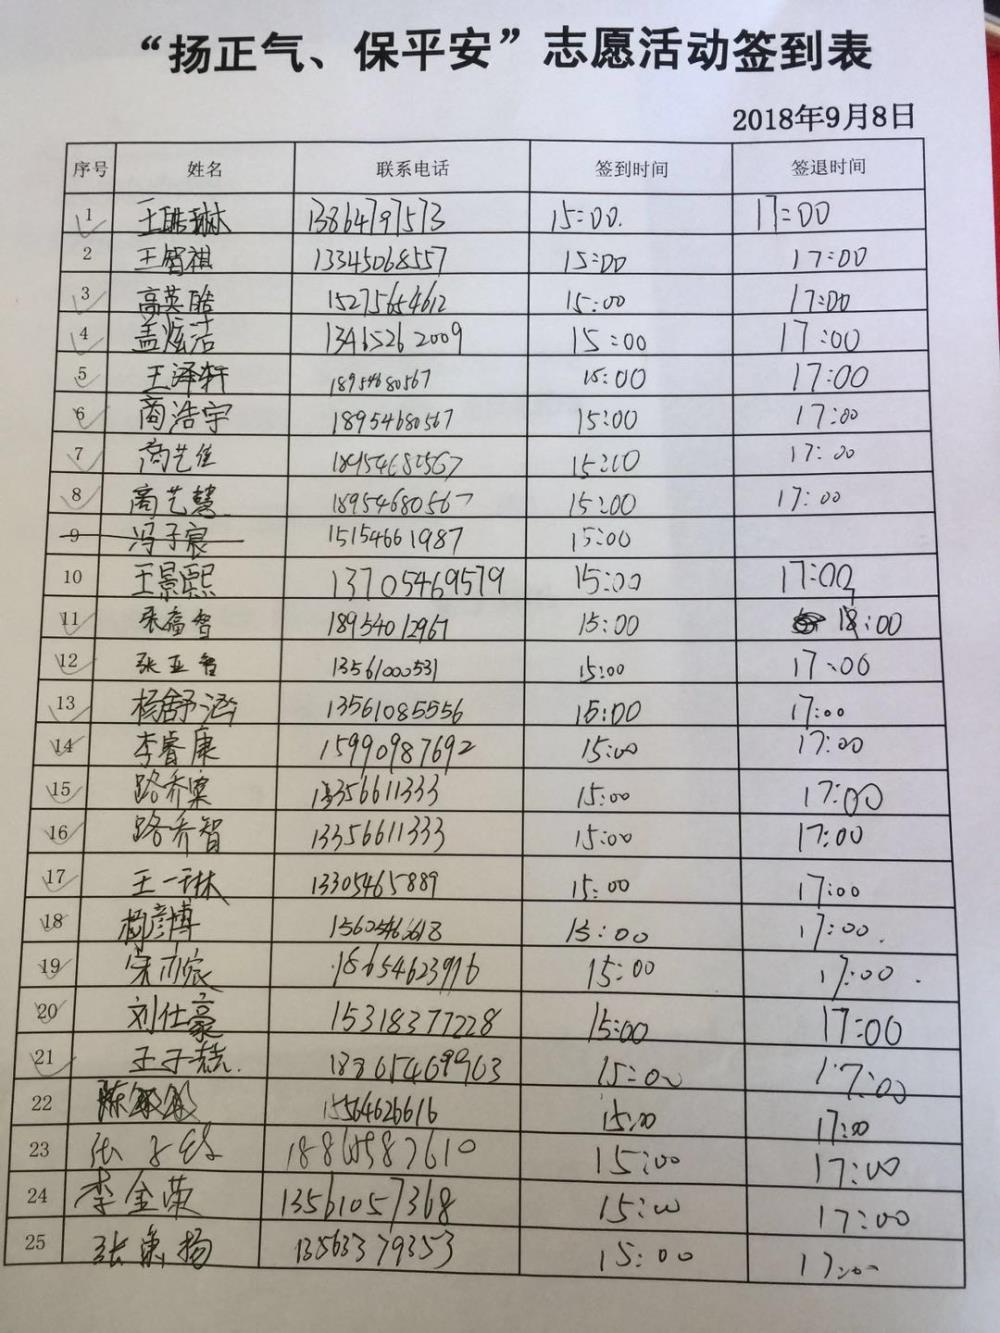 “扬正气、保平安”志愿活动签到表
2018年9月8日
序号 姓名 联系电话 签到时间 签退时间
1 王皓琳 13864797573 15:00. 17:00
2 王智祺 13345068557 15:00 17:00
3 高英皓 15275654612 15:00 17:00
4 孟炫洁 13465262009 15:00 17:00
5 王泽轩 18954680567 15:00 17:00
6 商浩宇 18954680567 15:00 17:00
7 商艺佳 18954680567 15:00 17:00
8 商艺慧 18954680567 15:00 17:00
9 冯子宸 15154661987 15:00
10 王景熙 13705469579 15:00 17:00
11 18954012967 15:00 18:00
12 张亚鲁 13561000531 15:00 17:00
13 杨舒涵 13561085556 15:00 17:00
14 李睿康 15990987692 15:00 17:00
15 路乔棠 13356611333 15:00 17:00
16 路乔智 13356611333 15:00 17:00
17 王一琳 13305465889 15:00 17:00
18 杨彦博 15:00 17:00.
19 18654623916 15:00 17:00.
20 刘仕豪 15318377228 15:00 17:00
21 王子喆. 15:00 17:00
22 15564626616 15:00 17:00
23 15:00 17:00
24 李金荣 13561057368 15:00 17:00
25 13563379353 15:00 17:00